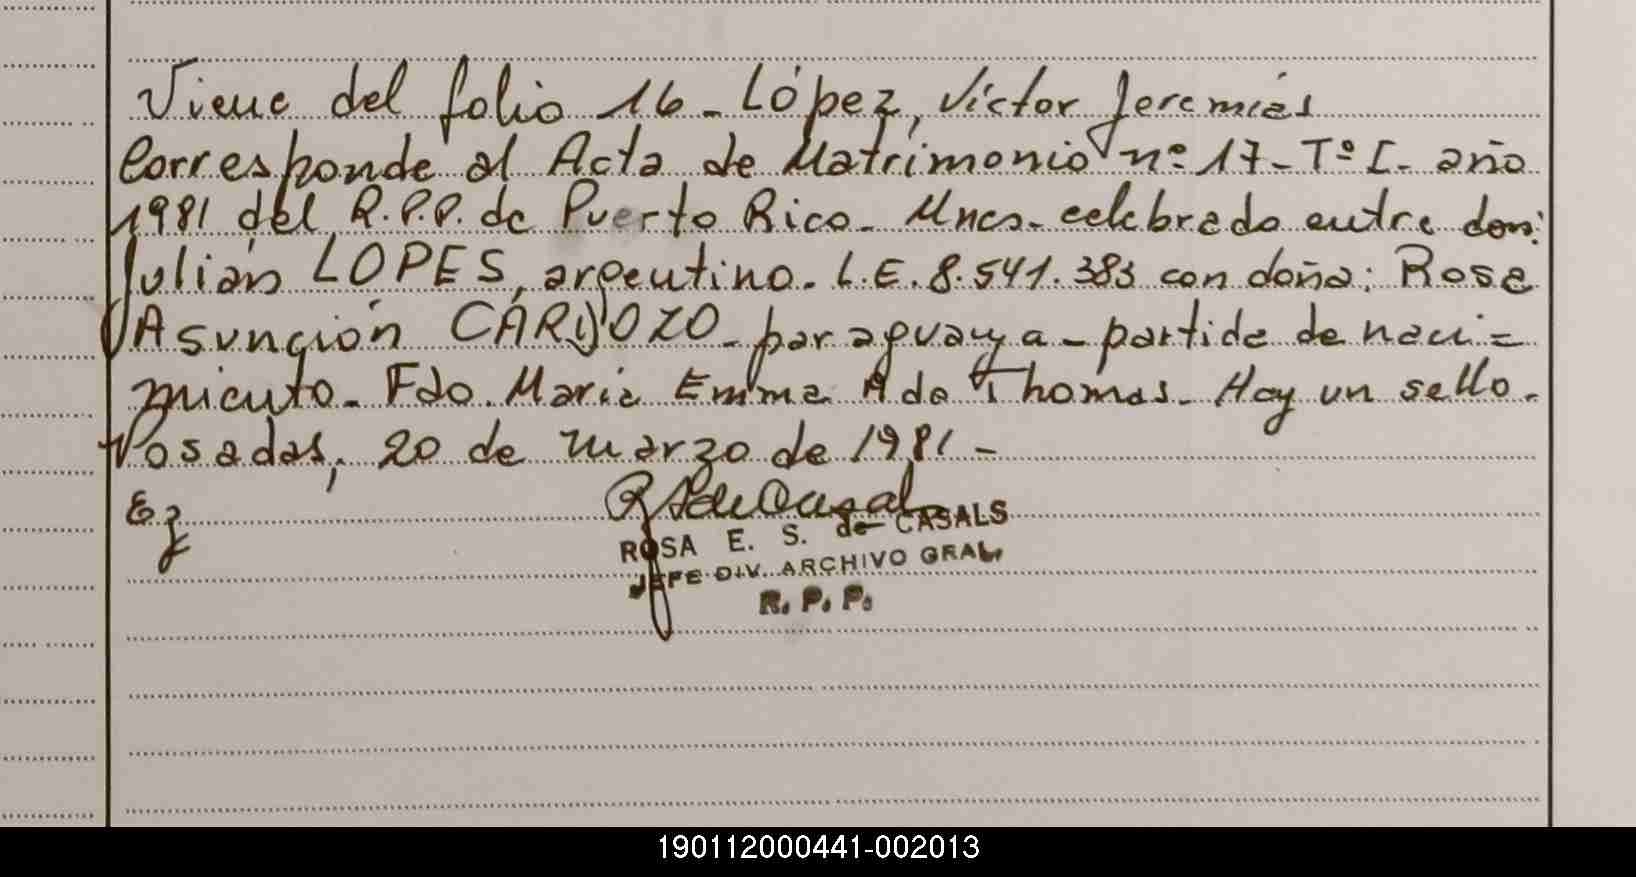 Viene del folio 16 - López, Víctor Jeremías
Corresponde al Acta de Matrimonio nº 17 - Tº I - año
1981 del R.P.P. de Puerto Rico - Mnes - celebrado entre don:
Julián LOPES, argentino. L.E. 8.541.383 con doña: Rosa
Asunción CARDOZO - paraguaya - partida de naci=
miento - Fdo. María Emma A de Thomas - Hay un sello.
Posadas, 20 de marzo de 1981 -
Ez
ROSA E. S. de CASALS
JEFE DIV. ARCHIVO GRAL.
R. P. P.
190112000441-002013